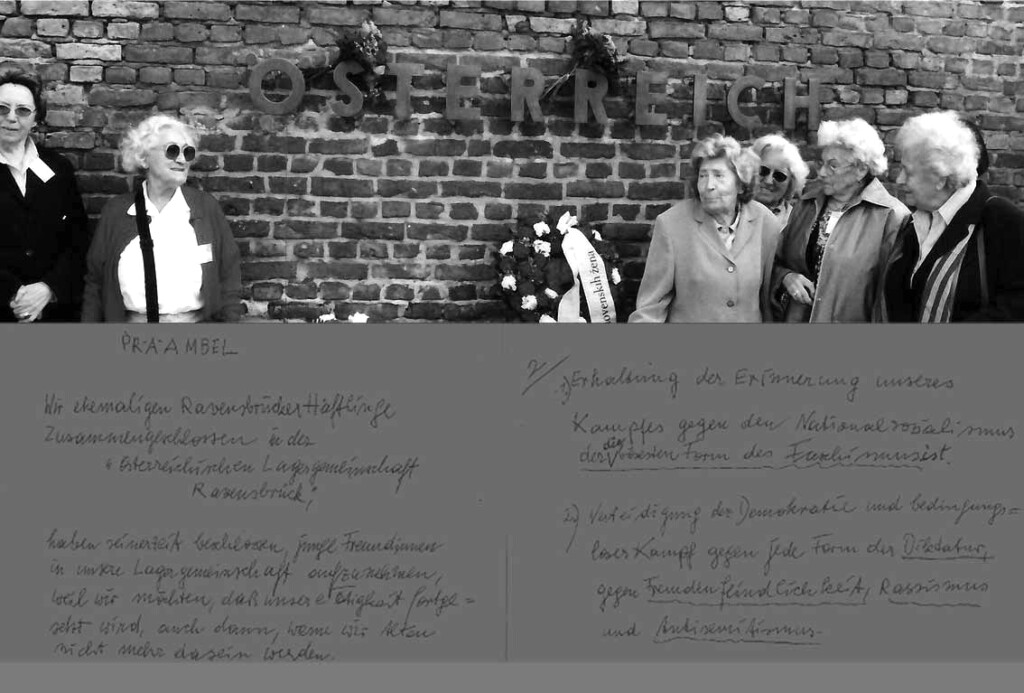 ÖSTERREICH
ovenskih žena
PRÄAMBEL
Wir ehemaligen Ravensbrücker Häftlinge
Zusammengeschlossen in der
"Österreichischen Lagergemeinschaft
Ravensbrück",
haben seinerzeit beschlossen, junge Freundinnen
in unsere Lagergemeinschaft aufzunehmen,
weil wir möchten, daß unsere Tätigkeit fortge=
setzt wird, auch dann, wenn wir Alten
nicht mehr dasein werden.
2/
1) Erhaltung der Erinnerung unseres
Kampfes gegen den Nationalsozialismus
der die bösesten Form des Faschismus ist.
2) Verteidigung der Demokratie und bedingungs=
loser Kampf gegen jede Form der Diktatur,
gegen Fremdenfeindlichkeit, Rassismus
und Antisemitismus.